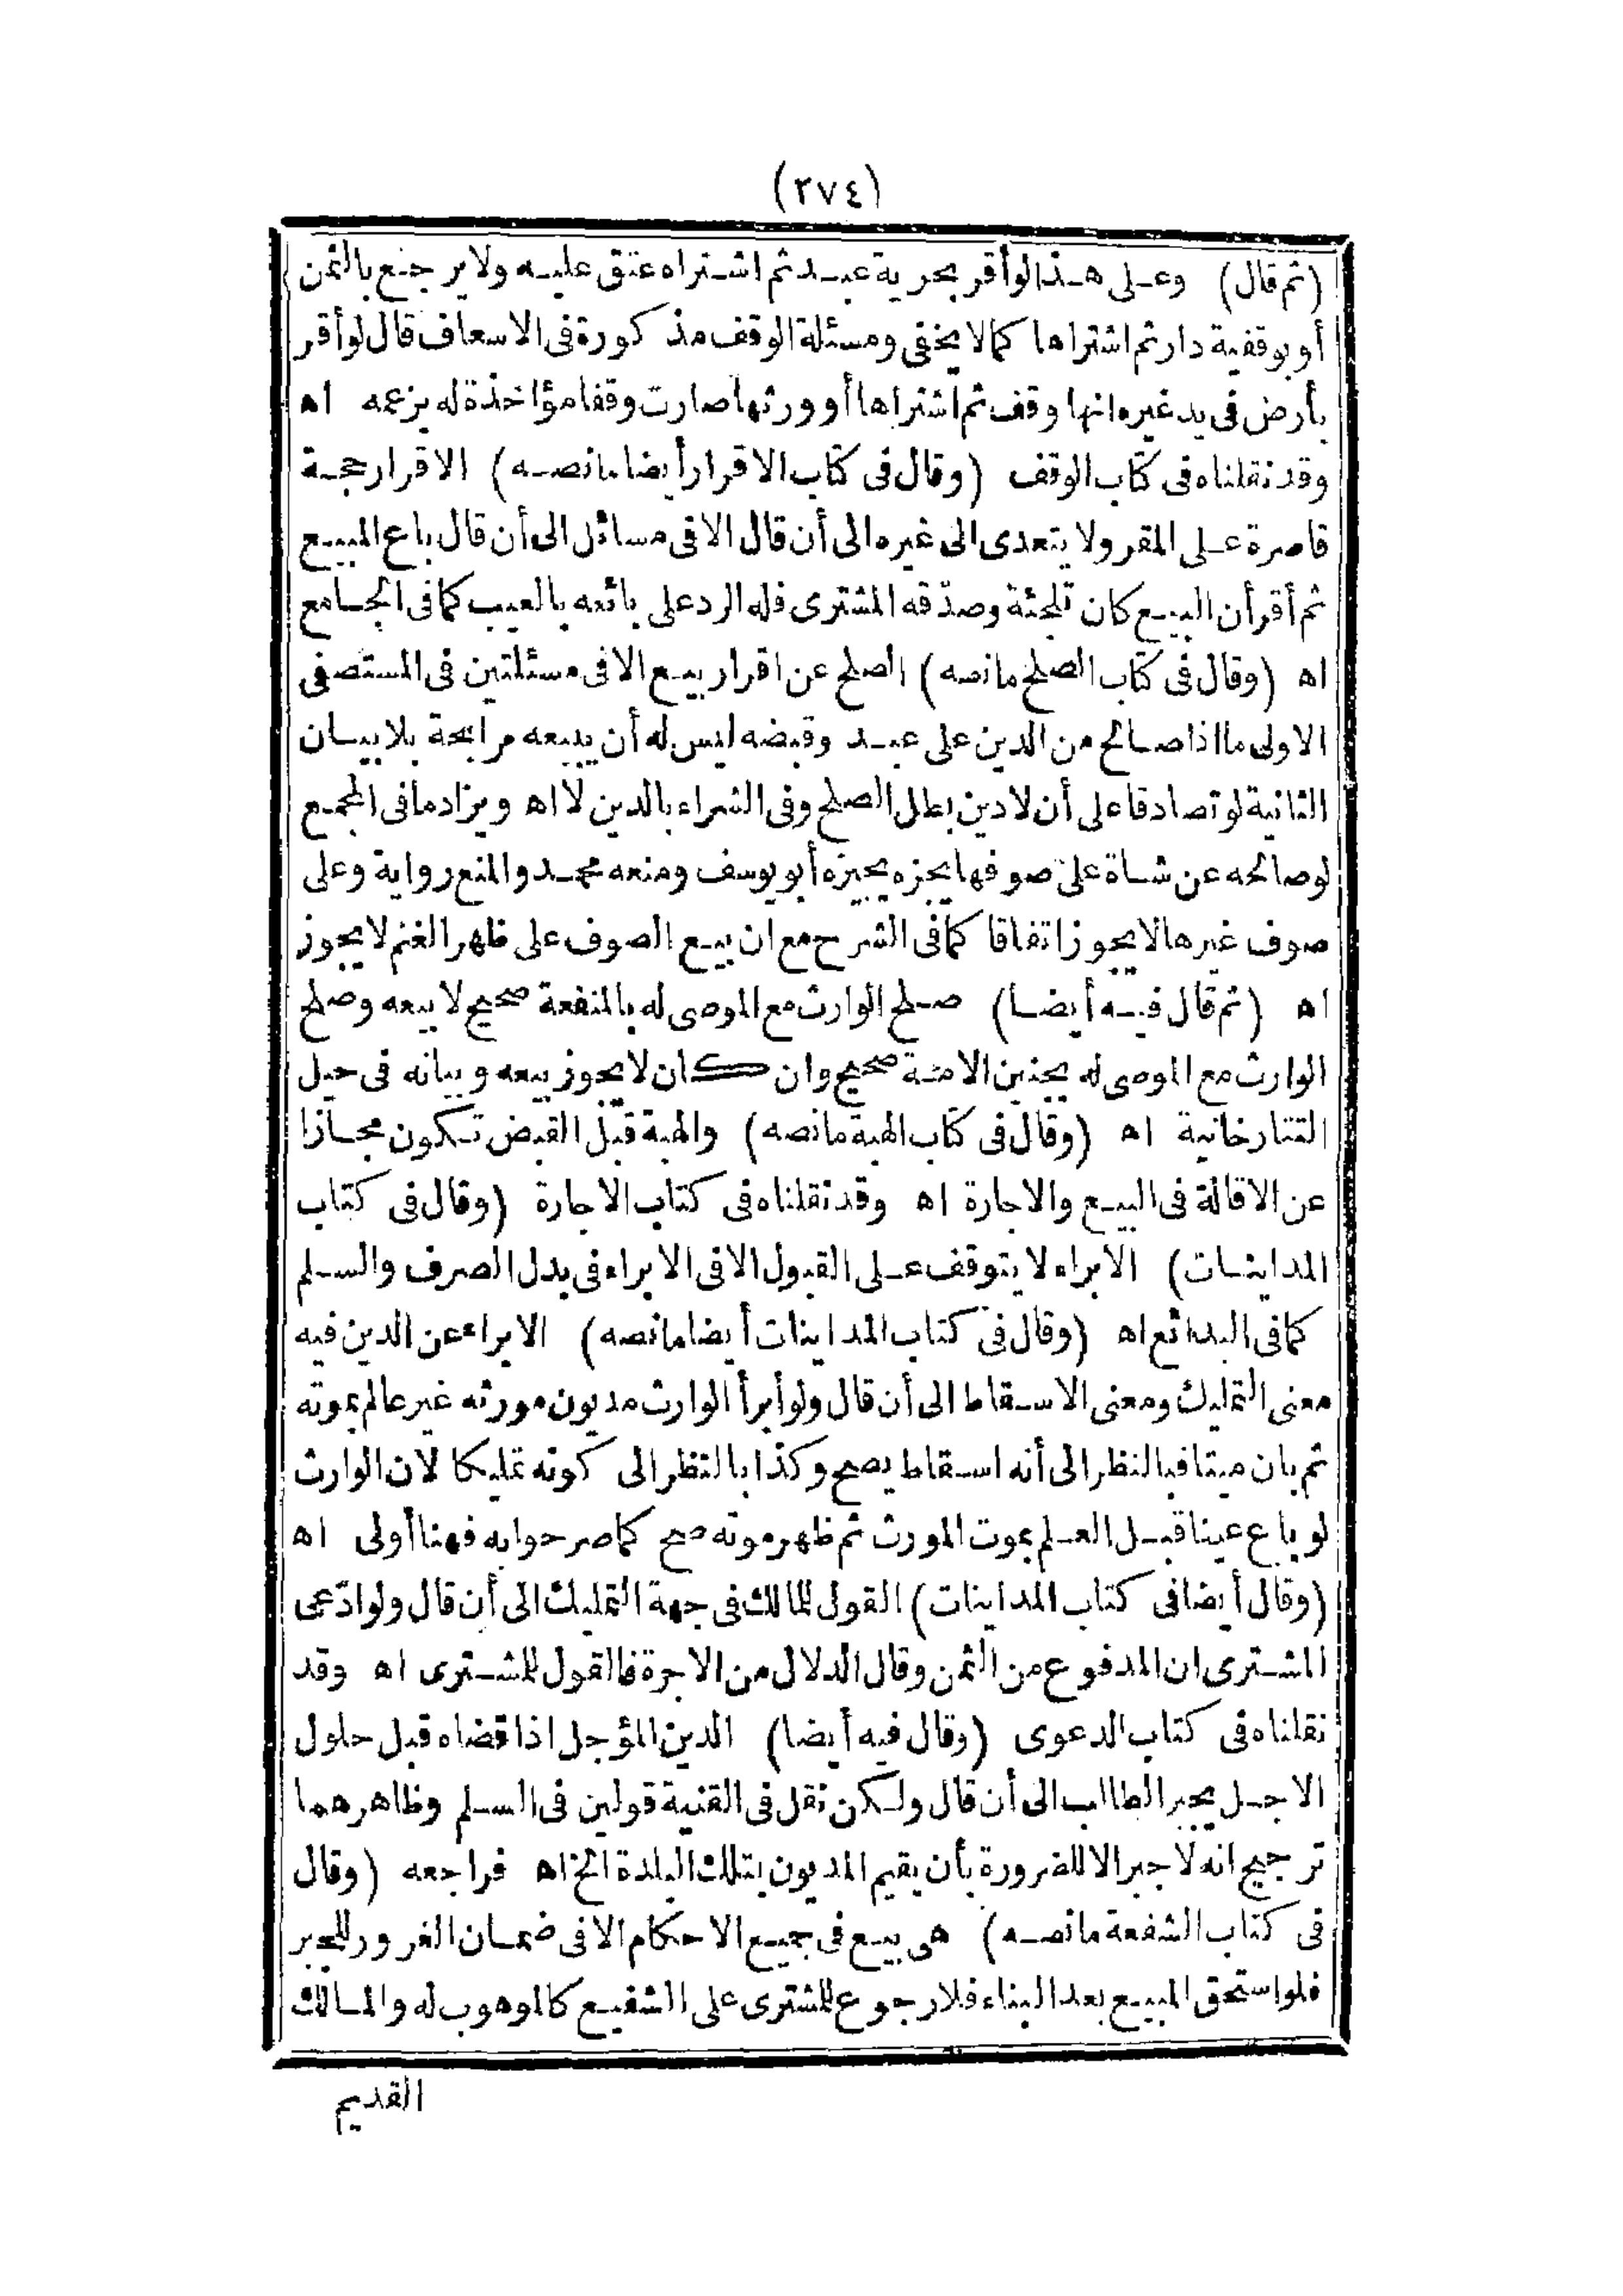 (٢٧٤)
(ثم قال) وعلى هذا لو أقر بحرية عبد ثم اشتراه عتق عليه ولا يرجع بالثمن
أو بوقفية دار ثم اشتراها كما لا يخفى ومسئلة الوقف مذكورة فى الاسعاف قال لو أقر
بأرض فى يد غيره انها وقف ثم اشتراها أو ورثها صارت وقفا مؤاخذة له بزعمه اه
وقد نقلناه فى كتاب الوقف (وقال فى كتاب الاقرار أيضا مانصه) الاقرار حجة
قاصرة على المقر ولا يتعدى الى غيره الى أن قال الا فى مسائل الى أن قال باع المبيع
ثم أقر أن البيع كان تلجئة وصدّقه المشترى فله الرد على بائعه بالعيب كما فى الجامع
اه (وقال فى كتاب الصلح مانصه) الصلح عن اقرار بيع الا فى مسئلتين فى المستصفى
الاولى ما اذا صالح من الدين على عبد وقبضه ليس له أن يبيعه مرابحة بلا بيان
الثانية لو تصادقا على أن لا دين بطل الصلح وفى الشراء بالدين لا اه ويزاد ما فى المجمع
لو صالحه عن شاة على صوفها يجزه يجيزه أبو يوسف ومنعه محمد والمنع رواية وعلى
صوف غيرها لا يجوز اتفاقا كما فى الشرح مع ان بيع الصوف على ظهر الغنم لا يجوز
اه (ثم قال فيه أيضا) صلح الوارث مع الموصى له بالمنفعة صحيح لا بيعه وصلح
الوارث مع الموصى له بجنين الامة صحيح وان كان لا يجوز بيعه وبيانه فى حيل
التتارخانية اه (وقال فى كتاب الهبة مانصه) والهبة قبل القبض تكون مجازا
عن الاقالة فى البيع والاجارة اه وقد نقلناه فى كتاب الاجارة (وقال فى كتاب
المداينات) الابراء لا يتوقف على القبول الا فى الابراء فى بدل الصرف والسلم
كما فى البدائع اه (وقال فى كتاب المداينات أيضا مانصه) الابراء عن الدين فيه
معنى التمليك ومعنى الاسقاط الى أن قال ولو أبرأ الوارث مديون مورثه غير عالم بموته
ثم بان ميتا فبالنظر الى أنه اسقاط يصح وكذا بالنظر الى كونه تمليكا لان الوارث
لو باع عينا قبل العلم بموت المورث ثم ظهر موته صح كما صرحوا به فهنا أولى اه
(وقال أيضا فى كتاب المداينات) القول للمالك فى جهة التمليك الى أن قال ولو ادّعى
المشترى ان المدفوع من الثمن وقال الدلال من الاجرة فالقول للمشترى اه وقد
نقلناه فى كتاب الدعوى (وقال فيه أيضا) الدين المؤجل اذا قضاه قبل حلول
الاجل يجبر الطالب الى أن قال ولكن نقل فى القنية قولين فى السلم وظاهرهما
ترجيح انه لا جبر الا للضرورة بأن يقيم المديون بتلك البلدة الخ اه فراجعه (وقال
فى كتاب الشفعة مانصه) هى بيع فى جميع الاحكام الا فى ضمان الغرور للجبر
فلو استحق المبيع بعد البناء فلا رجوع للمشترى على الشفيع كالموهوب له والمالك
القديم